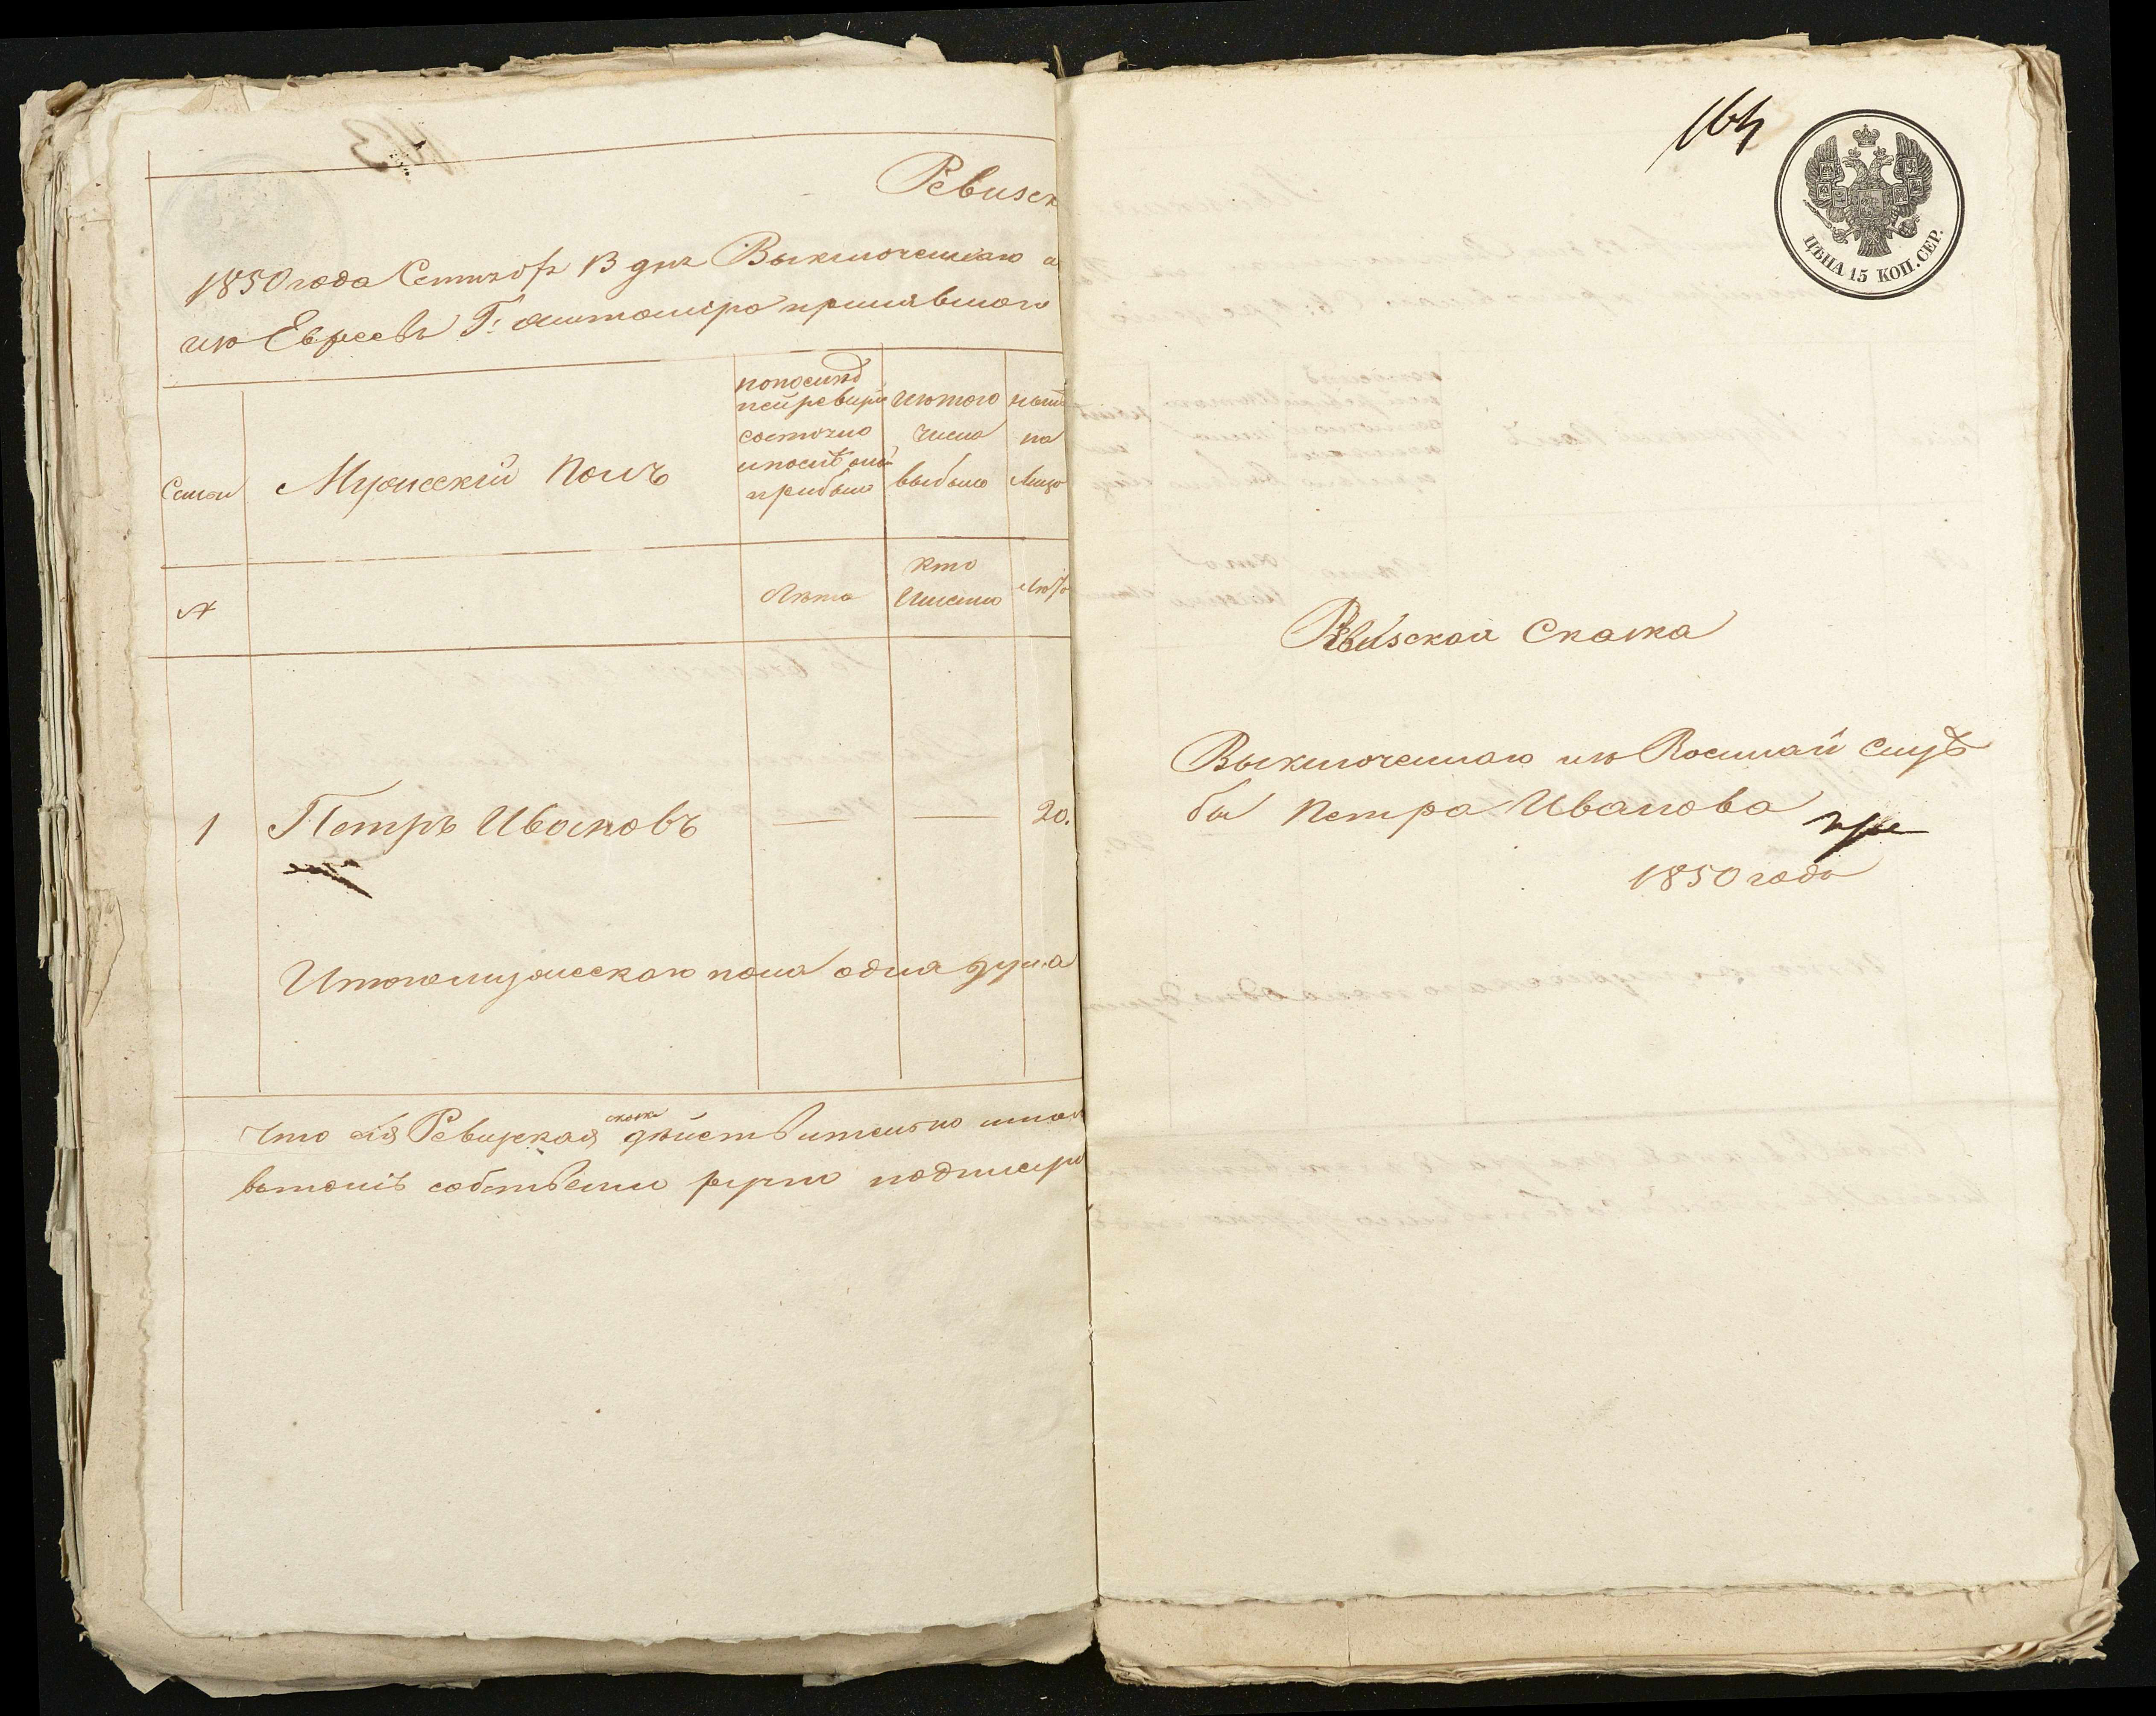 Ревизск
1850 года Сентября 13 дня Выключеннаго
изъ Евреевъ Г: Житомира принявшаго
Семьи
Мужескій полъ
по последней ревизіи состояло и после оной прибыло
изъ того числа выбыло
ныне на лицо
№
Лѣта
кто Именно
Лѣта
1 Петръ Ивановъ — — 20.
Итого мужескаго пола одна душа
сказка
Что сія Ревизская дѣйствительно
въ томъ собственно ручно подписую
164
ЦѢНА 15 КОП. СЕР.
Ревизская Сказка
Выключеннаго изъ Военной служ
бы Петра Иванова
1850 года